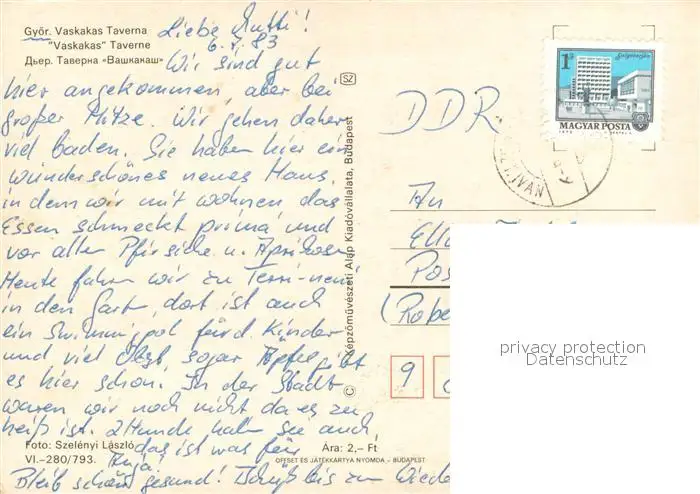 Győr. Vaskakas Taverna
"Vaskakas" Taverne
Дьер. Таверна «Вашкакаш»
Liebe Mutti!
6.7.83
Wir sind gut
hier angekommen, aber bei
großer Hitze. Wir gehen daher
viel baden. Sie haben hier ein
wunderschönes neues Haus,
in dem wir mit wohnen das
Essen schmeckt prima, und
vor allen Pfirsiche u. Aprikosen
Heute fahren wir zu
in den Gart. dort ist auch
ein für d. Kinder
und viel Obst, sogar Äpfel gibt
es hier schon. In der Stadt
waren wir noch nicht da es zu
heiß ist. 2 Hunde haben sie auch,
das ist was für
Anja.
Bleib schön gesund! bis zu Wiede
Foto: Szelényi László
VI.–280/793.
Ára: 2,– Ft
OFFSET ÉS JÁTÉKKÁRTYA NYOMDA – BUDAPEST
© Képzőművészeti Alap Kiadóvállalata, Budapest
SZ
1Ft
MAGYAR POSTA
IVÁN
DDR
An
Pos
(Robe
9
privacy protection
Datenschutz